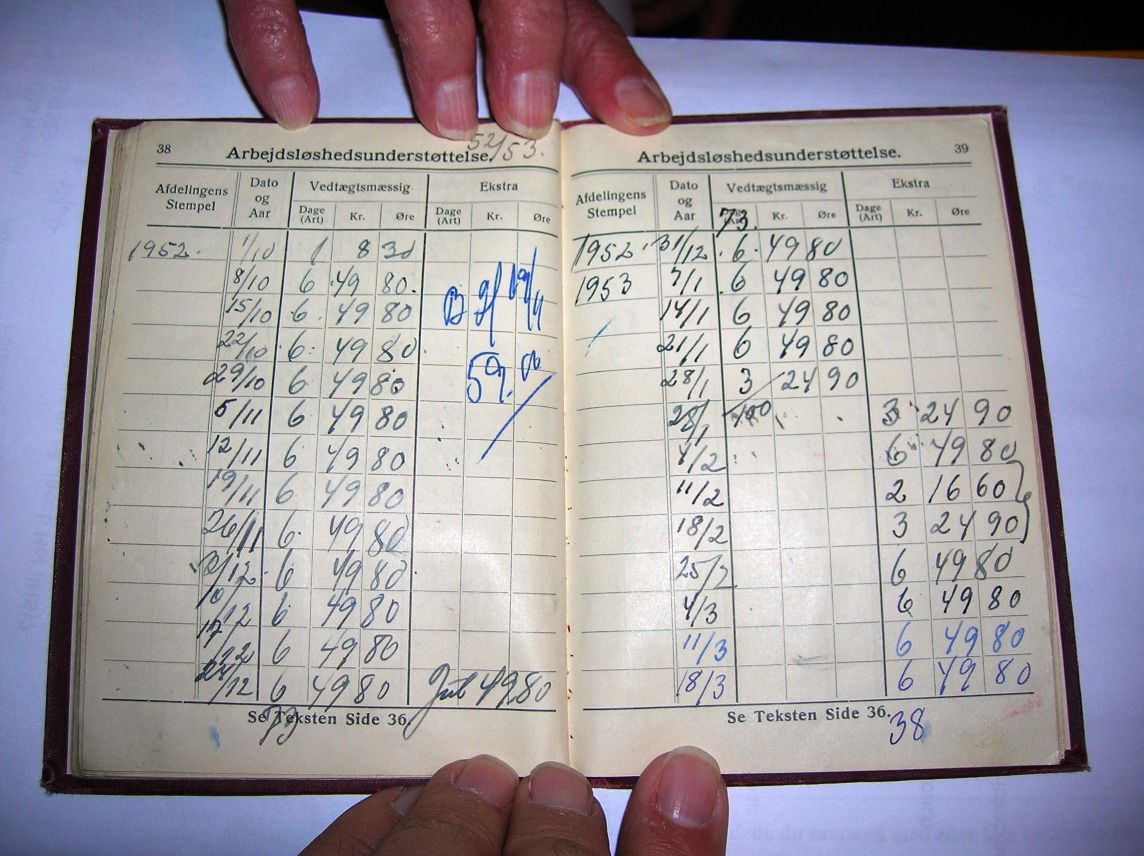 38 Arbejdsløshedsunderstøttelse. 52/53.
Afdelingens Stempel Dato og Aar Vedtægtsmæssig Ekstra
Dage (Art) Kr. Øre Dage (Art) Kr. Øre
1952. 1/10 1 8 30
8/10 6 49 80.
15/10 6 49 80
22/10 6 49 80
29/10 6 49 80
5/11 6 49 80
12/11 6 49 80
19/11 6 49 80
26/11 6 49 80
/12 6 49 80
10/12 6 49 80
17/12 6 49 80
24/12 6 49 80 Jul 49 80
Se Teksten Side 36.
73
Arbejdsløshedsunderstøttelse. 39
Afdelingens Stempel Dato og Aar Vedtægtsmæssig Ekstra
Dage (Art) Kr. Øre Dage (Art) Kr. Øre
73.
1952 31/12 6 49 80
1953 7/1 6 49 80
14/1 6 49 80
21/1 6 49 80
28/1 3 24 90
28/1 3 24 90
4/2 6 49 80
11/2 2 16 60
18/2 3 24 90
25/2 6 49 80
4/3 6 49 80
11/3 6 49 80
18/3 6 49 80
Se Teksten Side 36.
38